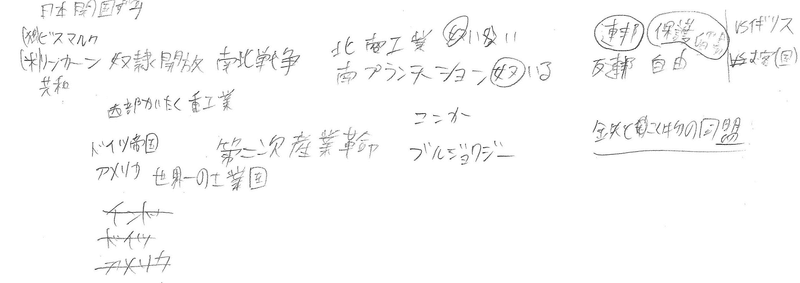 日本開国ずみ
(独)ビスマルク
(米)リンカーン 奴隷開放 南北戦争
共和
北 商工業 奴いない
南プランテーション 奴いる
連邦 保護
反連邦 自由
vsイギリス
西部かいたく 重工業
ドイツ帝国
アメリカ 世界一の工業国
第二次産業革命
ユンカー
ブルジョワジー
鉄と穀物の同盟
インド
ドイツ
アメリカ